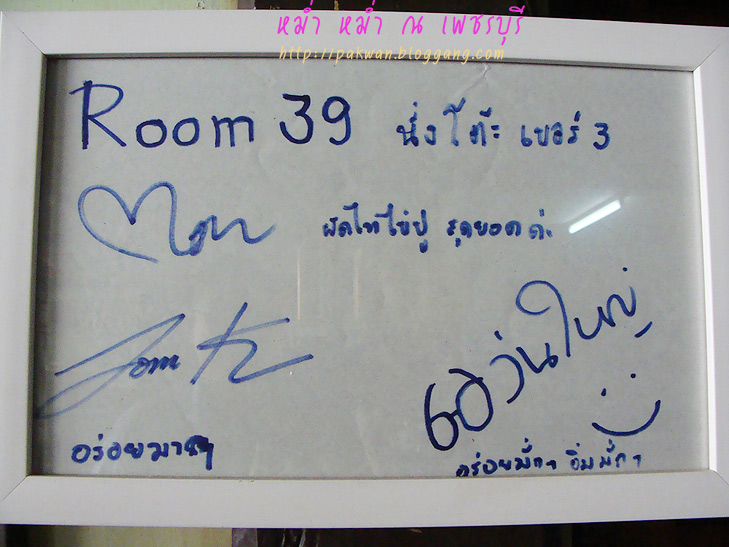 หม่ำ หม่ำ ณ เพชรบุรี
http://pakwan.bloggang.com
Room 39 นั่งโต๊ะ เบอร์ 3
ผัดไทไข่ปู สุดยอดค่ะ
แว่นใหญ่
อร่อยมากๆ
อร่อยมั่กๆ อิ่มมั่กๆ